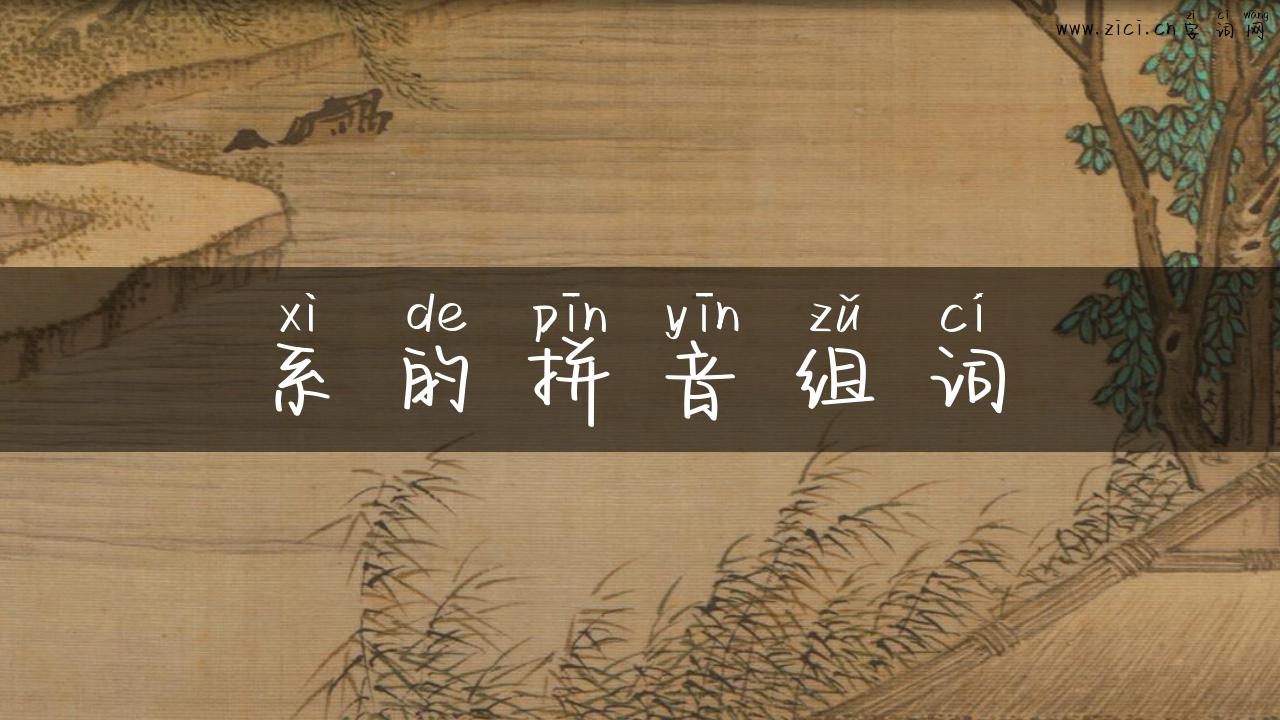 zì cí wǎng
www.zici.cn字词网
xì de pīn yīn zǔ cí
系的拼音组词